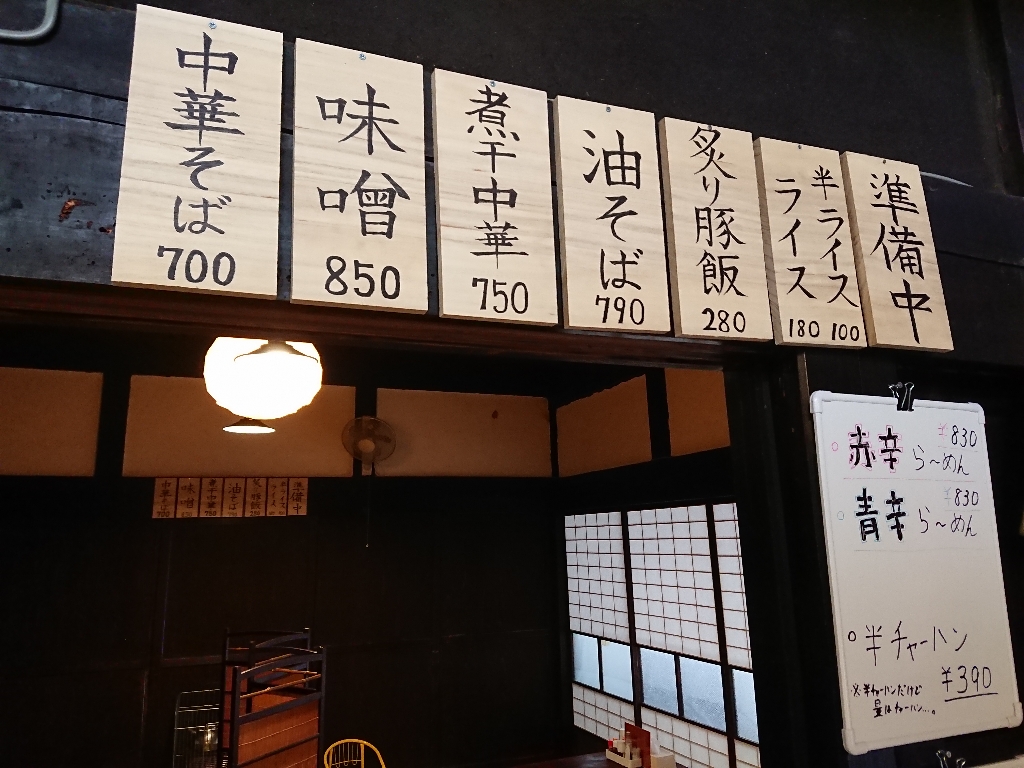 中華そば
700
味噌
850
煮干中華
750
油そば
790
炙り豚飯
280
半ライス
ライス
180 100
準備中
赤辛 ¥830
ら〜めん
青辛 ¥830
ら〜めん
○半チャーハン
¥390
※半チャーハンだけど
量はチャーハン…。
中華そば
味噌
煮干中華
油そば
炙り豚飯
準備中